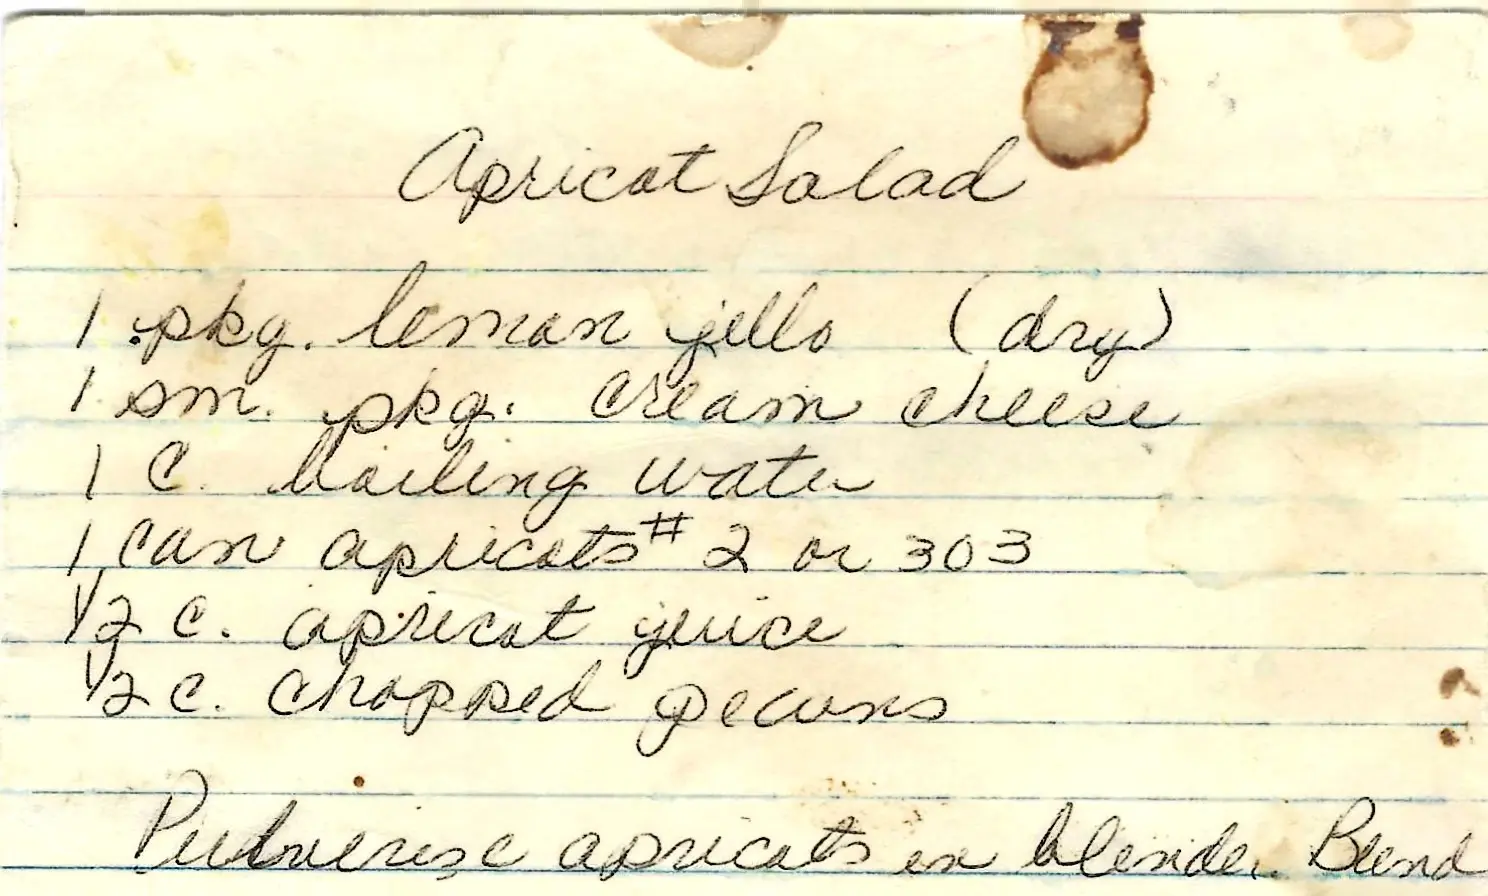 Apricot Salad
1 pkg. lemon jello (dry)
1 sm. pkg. cream cheese
1 c. boiling water
1 can apricots # 2 or 303
1/2 c. apricot juice
1/2 c. chopped pecans
Pulverise apricots in blender. Blend